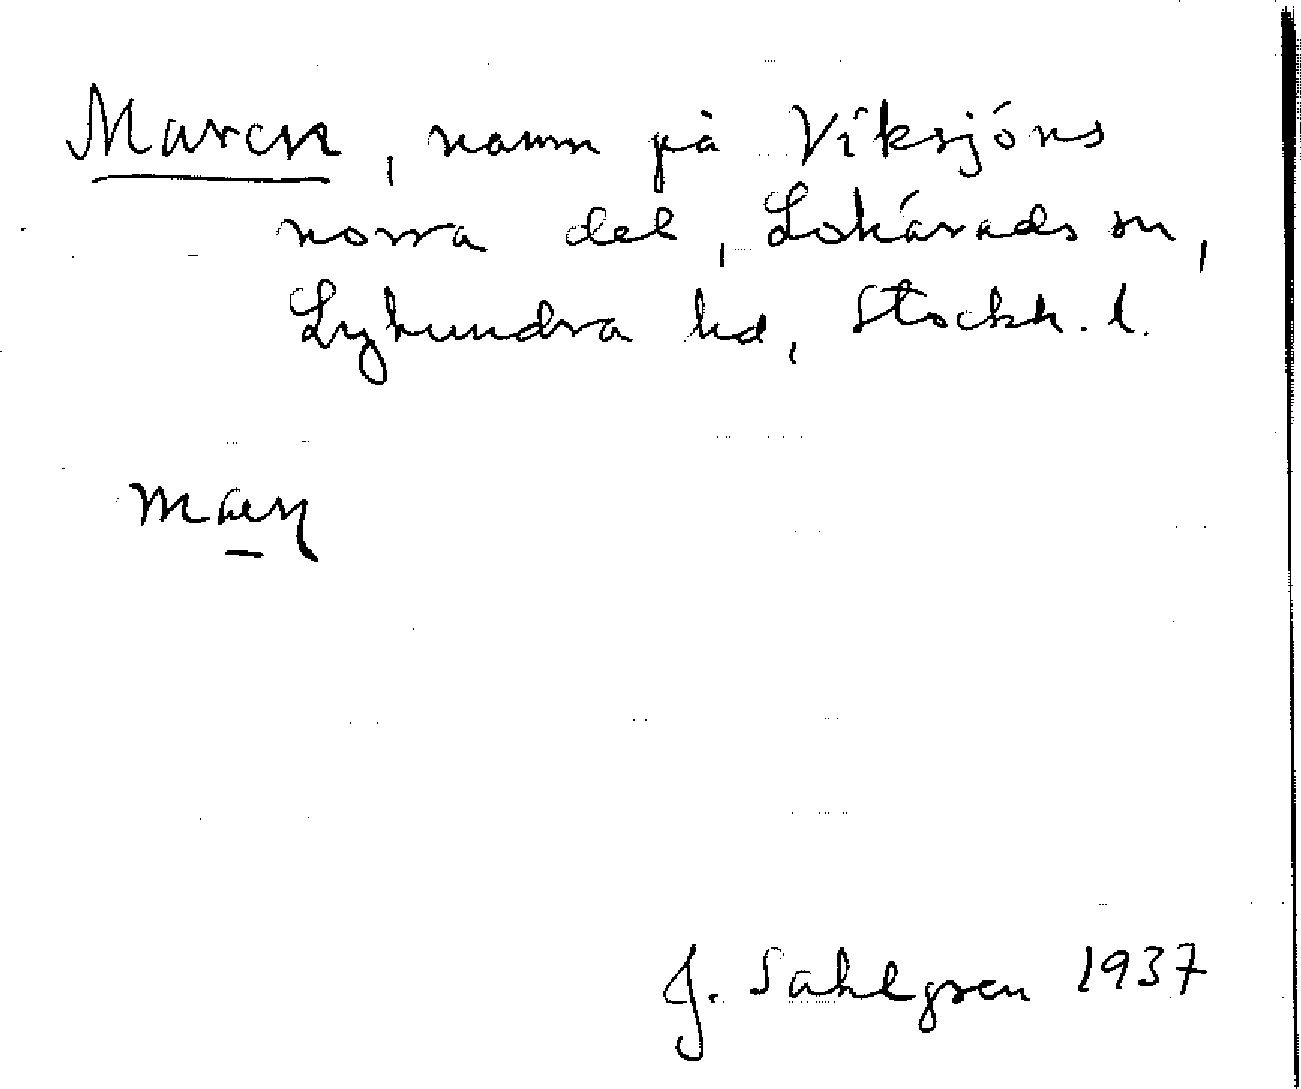 Maren, namn på Viksjöns
norra del, Lohärads sn,
Lyhundra hd, Stockh. l.
maen
J. Sahlgren 1937